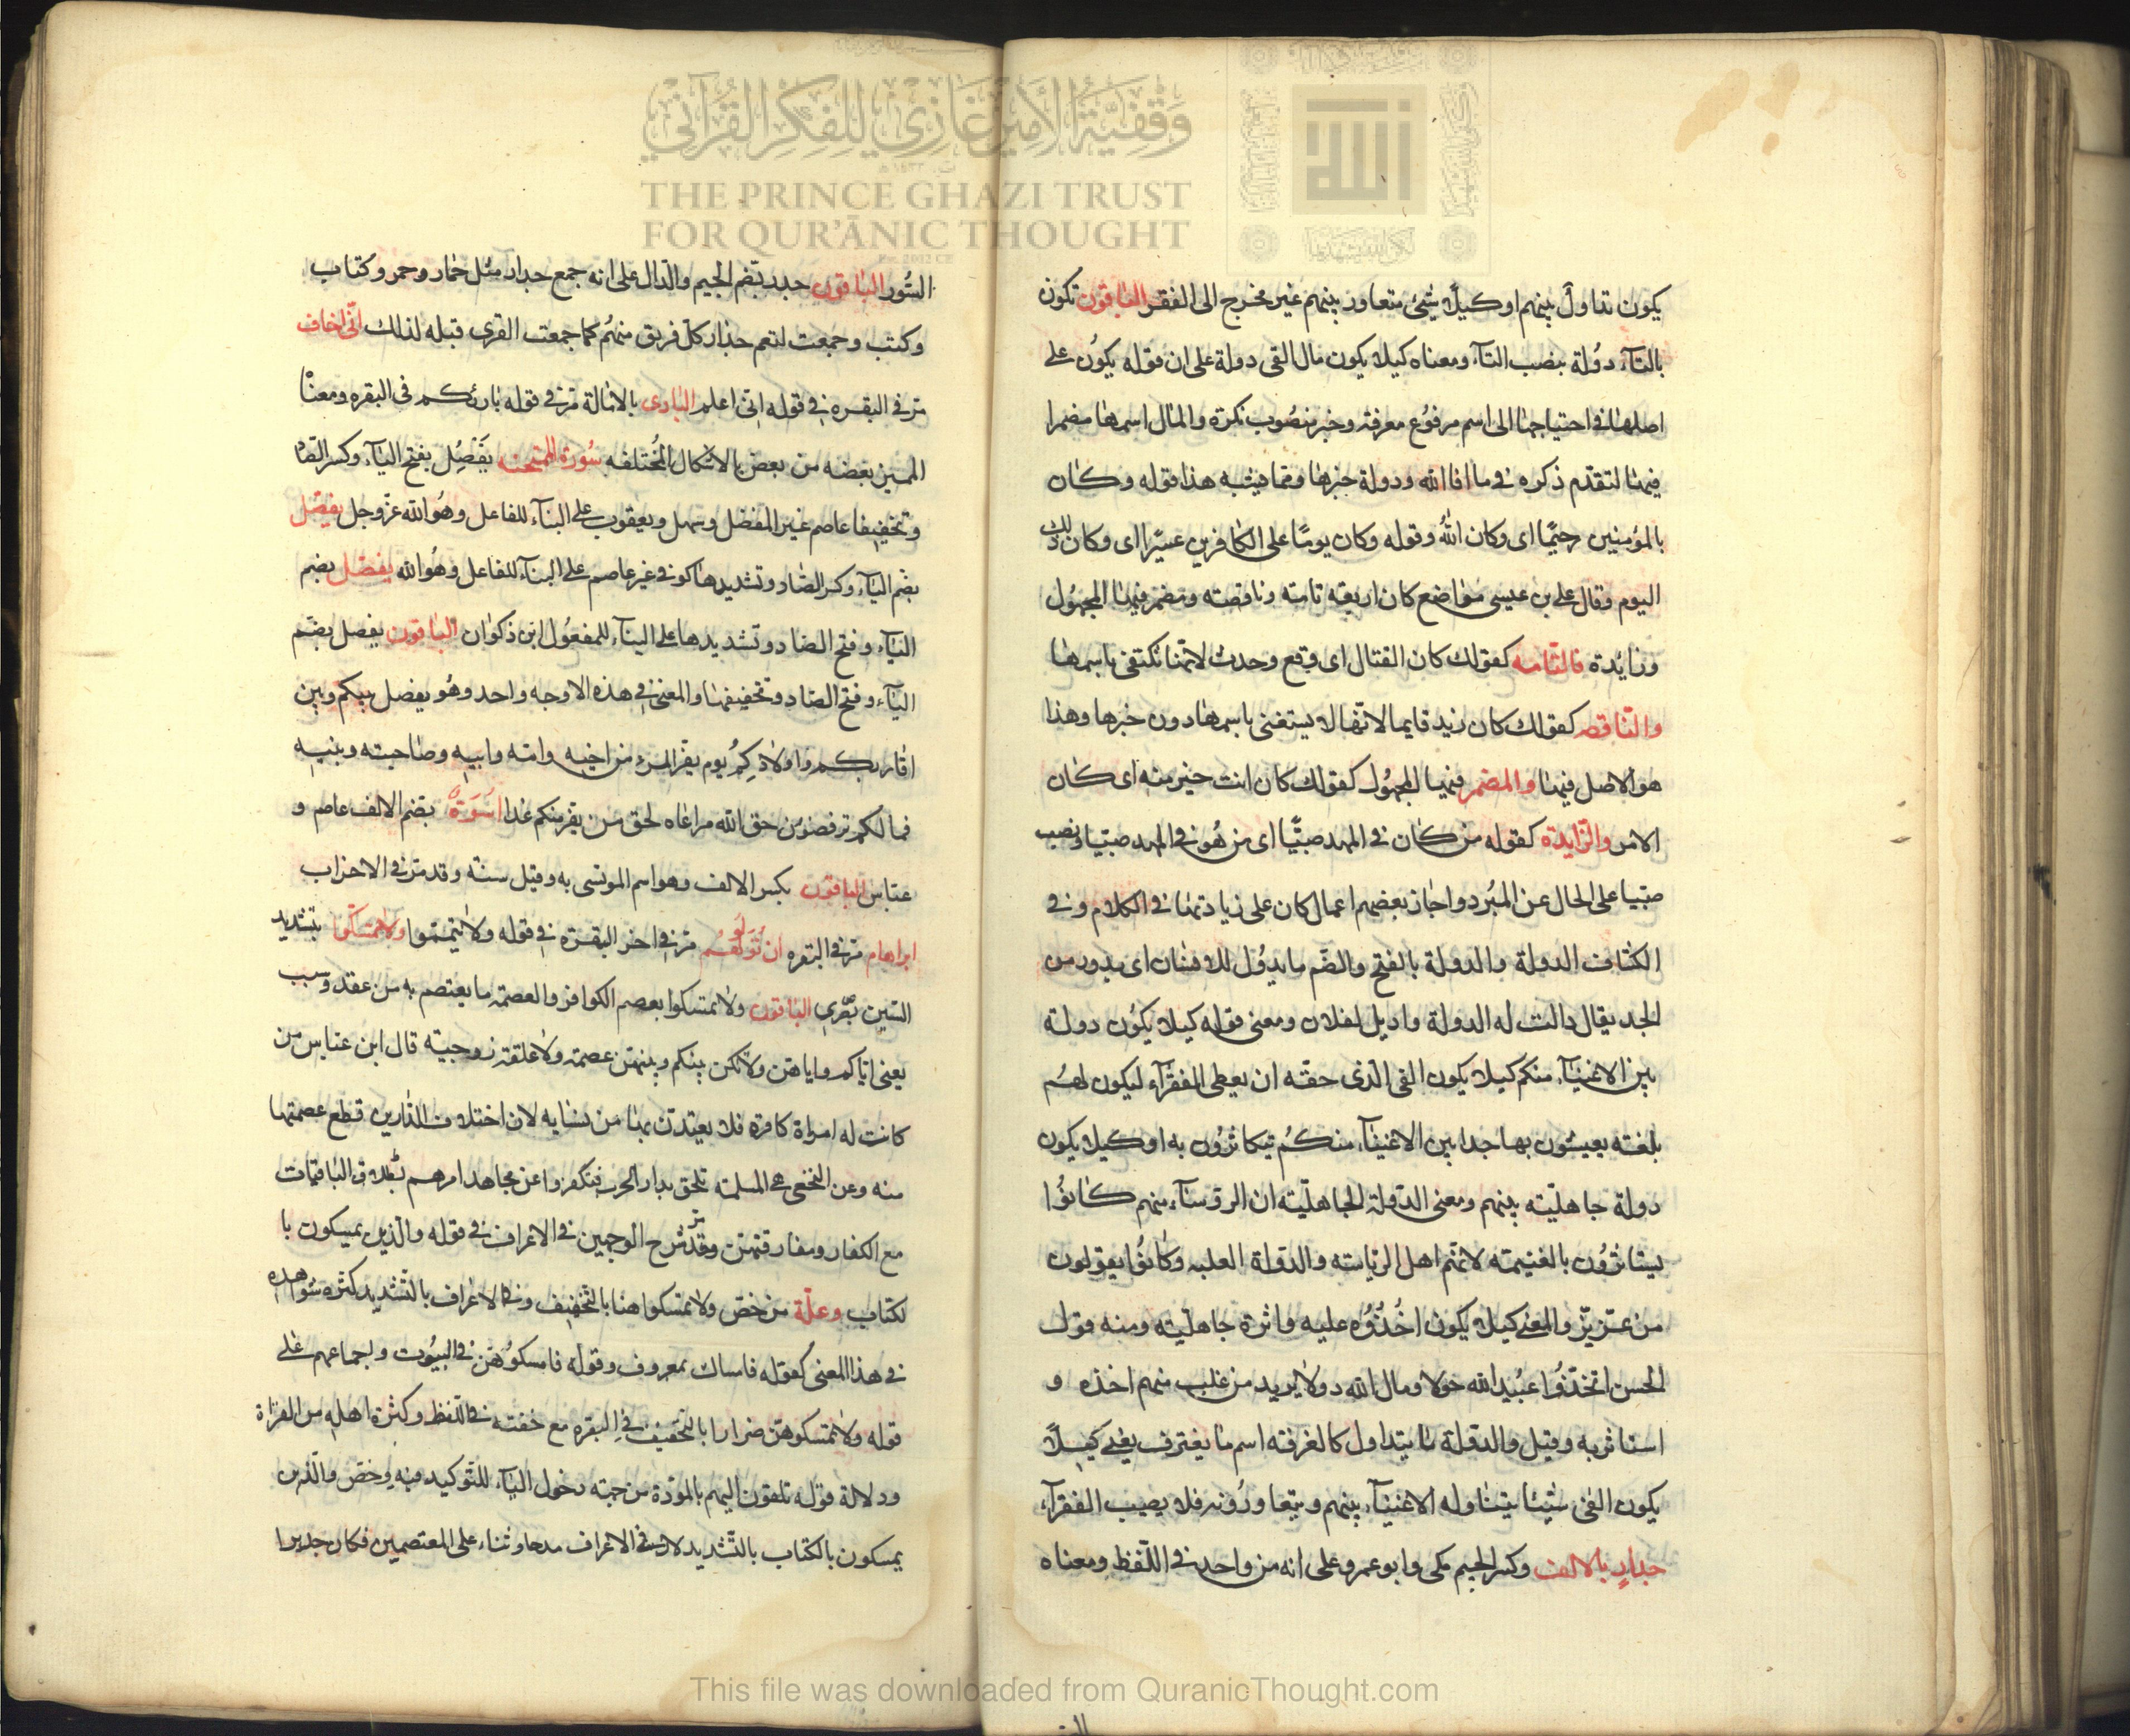 وقفية الأمير غازي للفكر القرآني
THE PRINCE GHAZI TRUST
FOR QUR'ĀNIC THOUGHT
الله
يكون تداول بينهم او كيلا شئ متعاور بينهم غير مخرج الى الفقر الباقون تكون
بالتآء دولة بنصب التآء ومعناه كيلا يكون مال الفى دولة على ان قوله يكون على
اصلها فى احتياجها الى اسم مرفوع معرفة وخبر منصوب نكرة والمال اسمها مضمرا
فيها لتقدم ذكره فى ما افا الله ودولة خبرها ومما هيشبه هذا قوله وكان
بالمؤمنين رحيما اى وكان الله وقوله وكان يوما على الكافرين عسيرا اى وكان ذلك
اليوم وقال على بن عيسى مواضع كان اربعة تامة وناقصة ومضمر فيها المجهول
وزايدة فالتامه كقولك كان القتال اى وقع وحدث لانها تكتفى باسمها
والناقصه كقولك كان زيد قايما لانها لا يستغنى باسمها دون خبرها وهذا
هو الاصل فيها والمضمر فيها المجهول كقولك كان انت خير منه اى كان
الامر والزايدة كقوله من كان فى المهد صبيا اى من هو فى المهد صبيا ونصب
صبيا على الحال عن المبرد واجاز بعضهم اعمال كان على زيادتها فى الكلام وفى
الكشاف الدولة والدولة بالفتح والضم ما يدول للانسان اى يدور من
الجد يقال دالت له الدولة واديل لفلان ومعنى قوله كيلا يكون دولة
بين الاغنيآء منكم كيلا يكون الفى الذى حقه ان يعطى الفقرآء ليكون لهم
بلغة يعيشون بها جدا بين الاغنيآء منكم يتكاثرون به او كيلا يكون
دولة جاهلية بينهم ومعنى الدولة الجاهلية ان الروسآء منهم كانوا
يستاثرون بالغنيمة لانهم اهل الرياسة والدولة الغلبه وكانوا يقولون
من عز بز والمعنى كيلا يكون اخذوه عليه واثرة جاهلية ومنه قول
الحسن اتخذوا عبيد الله خولا ومال الله دولا يريد من غلب منهم اخذه و
استاثر به وقيل والدولة ما يتداول كالغرفة اسم ما يغترف يعنى كيلا
يكون الفى شيئا يتناوله الاغنيآء بينهم ويتعاورونه فلا يصيب الفقرآء
جدار بالالف وكسر الجيم مكى وابو عمرو على انه من واحد فى اللفظ ومعناه
السور الباقون جدر بضم الجيم والدال على انه جمع جدار مثل خمار وخمر وكتاب
وكتب وجمعت لتعم جدار كل فريق منهم كما جمعت القرى قبله لذلك انى اخاف
مر فى البقره فى قوله انى اعلم البارى بالامالة مر فى قوله بارئكم فى البقره ومعناه
المميز بعضه من بعض بالاشكال المختلفه سورة الممتحنه يفصل بفتح اليآء وكسر الصاد
وتخفيفها عاصم غير المفضل وسهل ويعقوب على البنآء للفاعل وهو الله عز وجل يفصل
بضم اليآء وكسر الصاد وتشديدها كوفى غير عاصم على البنآء للفاعل وهو الله يفصل بضم
اليآء وفتح الصاد وتشديدها على البنآء للمفعول ابن ذكوان الباقون يفصل بضم
اليآء وفتح الصاد وتخفيفها والمعنى فى هذه الاوجه واحد وهو يفصل بينكم وبين
اقاربكم واولادكم يوم يفر المرء من اخيه وامه وابيه وصاحبته وبنيه
فما لكم ترفضون حق الله مراعاه لحق من يفر منكم غدا اسوة بضم الالف عاصم و
عباس الباقون بكسر الالف وهو اسم الموتسى به وقيل سنة وقد مر فى الاحزاب
ابراهام مر فى البقره ان تولوهم مر فى اخر البقرة فى قوله ولا تيمموا ولا تمسكوا بتشديد
السين بصرى الباقون ولا تمسكوا بعصم الكوافر والعصمة ما يعتصم به من عقد وسبب
يعنى اياكم واياهن ولا تكن بينكم وبينهن عصمة ولا علقة زوجية قال ابن عباس من
كانت له امراة كافرة فلا يعتدن بها من نسايه لان اختلاف الدارين قطع عصمتها
منه وعن النخعى هى المسلمة تلحق بدار الحرب فتكفر وعن مجاهد امرهم بطلاق الباقيات
مع الكفار ومفارقتهن وقد مر شرح الوجهين فى الاعراف فى قوله والذين يمسكون با
لكتاب وعلة من خص ولا تمسكوا هنا بالتخفيف وفى الاعراف بالتشديد كثره شواهده
فى هذا المعنى كقوله فامساك بمعروف وقوله فامسكوهن فى البيوت واجماعهم على
قوله ولا تمسكوهن ضرارا بالتخفيف فى البقره مع خفته فى اللفظ وكثرة اهله من القراة
ودلالة قوله تلقون اليهم بالمودة من جهة دخول اليآء للتوكيد فيه وخص والذين
يمسكون بالكتاب بالتشديد لانه فى الاعراف مدحا وثناء على المعتصمين فكان جديرا
This file was downloaded from QuranicThought.com